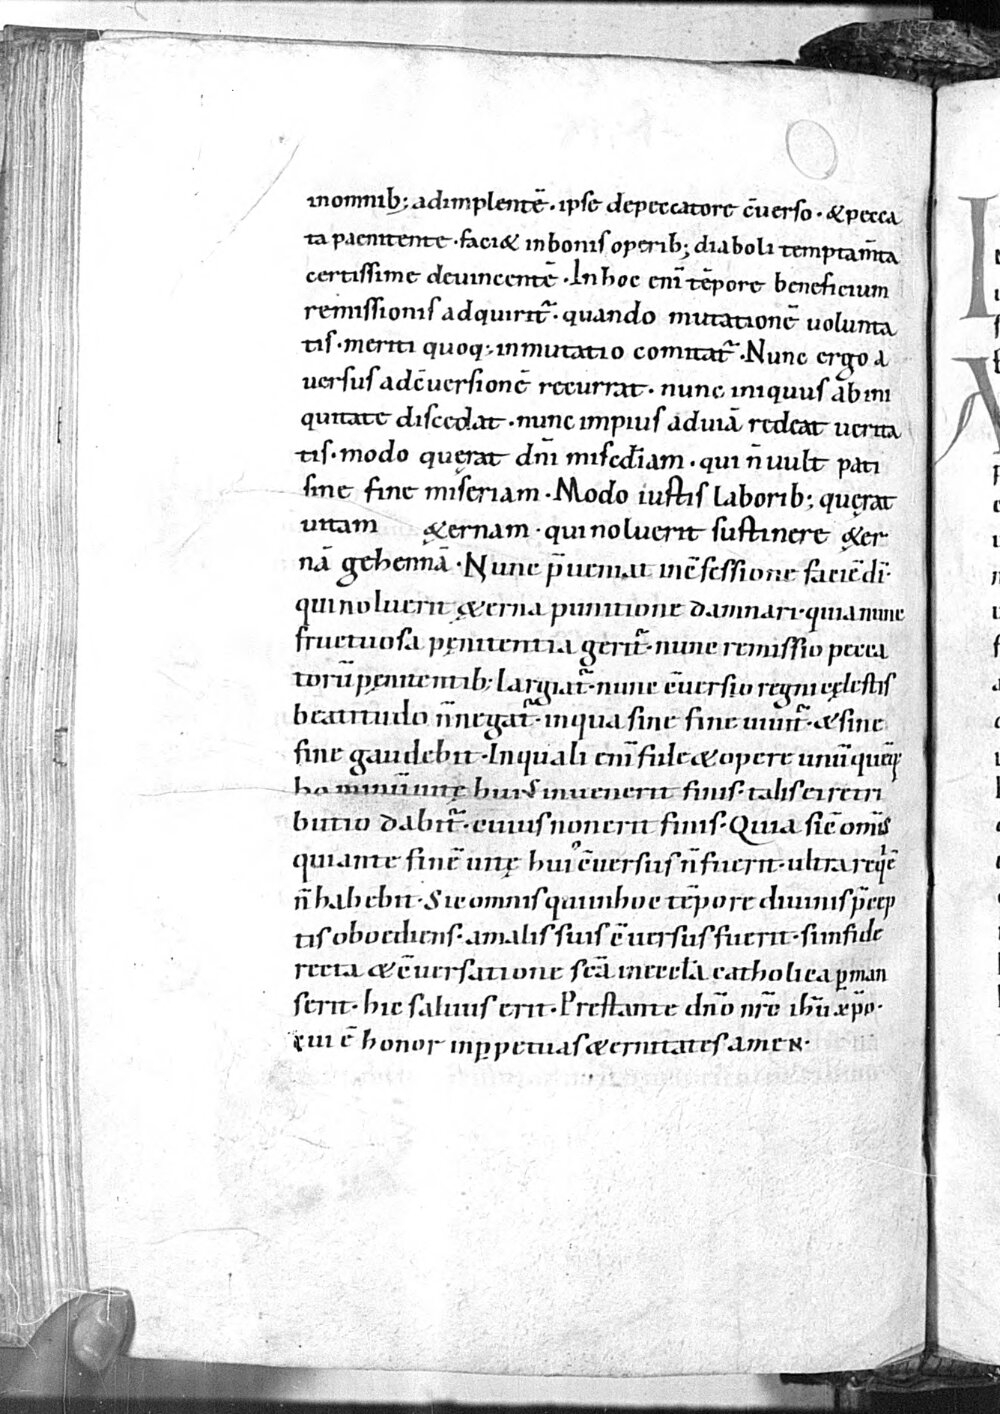 inomnib; adimplentē. ipse depeccatore c̄uerso. & pecca
ta paenitente. faci& inbonis operib; diaboli temptam̄ta
certissime deuincentē. In hoc eni̅ tēpore beneficium
remissionis adquirit᷑. quando mutationē uolunta
tis. meriti quoq; inmutatio comitat᷑. Nunc ergo a
uersus adc̄uersionē recurrat. nunc iniquus ab ini
quitate discedat. nunc impius aduiā redeat uerita
tis. modo quęrat dn̄i misc̄diam. qui n̄ uult pati
sine fine miseriam. Modo iustis laborib; quęrat
uitam &ernam. qui noluerit sustinere &er
nā gehennā. Nunc p̄ueniat inc̄fessione faciē dī.
qui noluerit &erna punitione damnari. quia nunc
fructuosa pęnitentia gerit᷑. nunc remissio pecca
torū pęnitentib; largiat᷑. nunc c̄uersio regni cęlestis
beatitudo n̄ negat᷑. in qua sine fine uiuit᷑. & sine
fine gaudebit. In quali eni̅ fide & opere unū quēq;
hominū uitę hui᷒ inuenerit finis. talis ei retri
butio dabit᷑. cuius non erit finis. Quia sic om̄is
qui ante finē uitę hui᷒ c̄uersus n̄ fuerit. ultra reqiē
n̄ habebit. Sic omnis qui inhoc tēpore diuinis p̄cep
tis oboediens. amalis suis c̄uersus fuerit. si infide
recta & c̄uersatione sc̄a inecclā catholica ꝑman
serit. hic saluus erit. Prestante dn̄o nr̄o ih̄u xp̄o.
cui ē honor inꝑpetuas &ernitates amen.